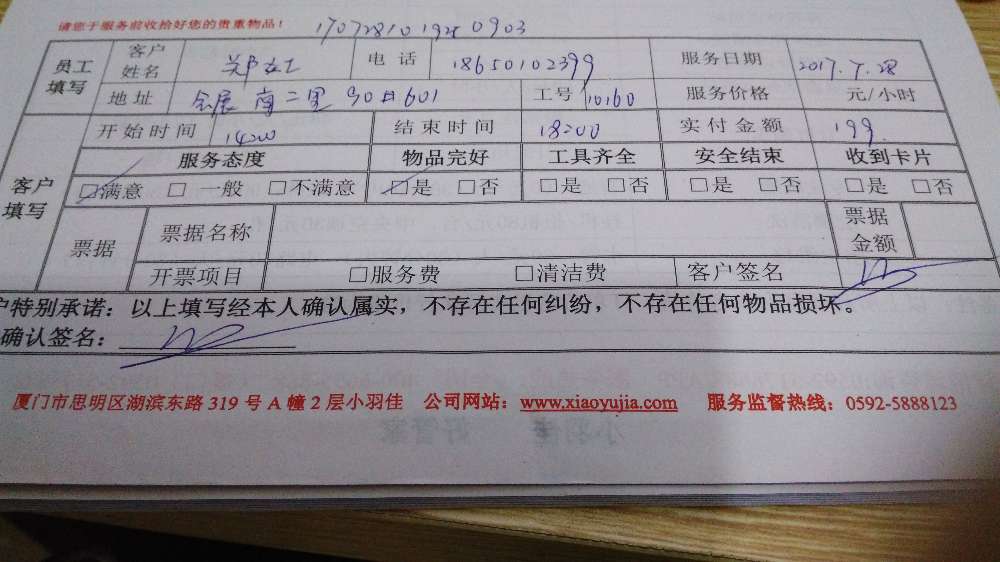 请您于服务前收拾好您的贵重物品！ 1707281019280903
员工填写 客户姓名 郑女士 电话 18650102399 服务日期 2017.7.28
地址 会展南二里90#601 工号 10160 服务价格 元/小时
客户填写 开始时间 1400 结束时间 18:00 实付金额 199
服务态度 物品完好 工具齐全 安全结束 收到卡片
□满意 □一般 □不满意 □是 □否 □是 □否 □是 □否 □是 □否
票据 票据名称 票据金额
开票项目 □服务费 □清洁费 客户签名
户特别承诺：以上填写经本人确认属实，不存在任何纠纷，不存在任何物品损坏。
确认签名：
厦门市思明区湖滨东路 319 号 A 幢 2 层小羽佳 公司网站：www.xiaoyujia.com 服务监督热线：0592-5888123